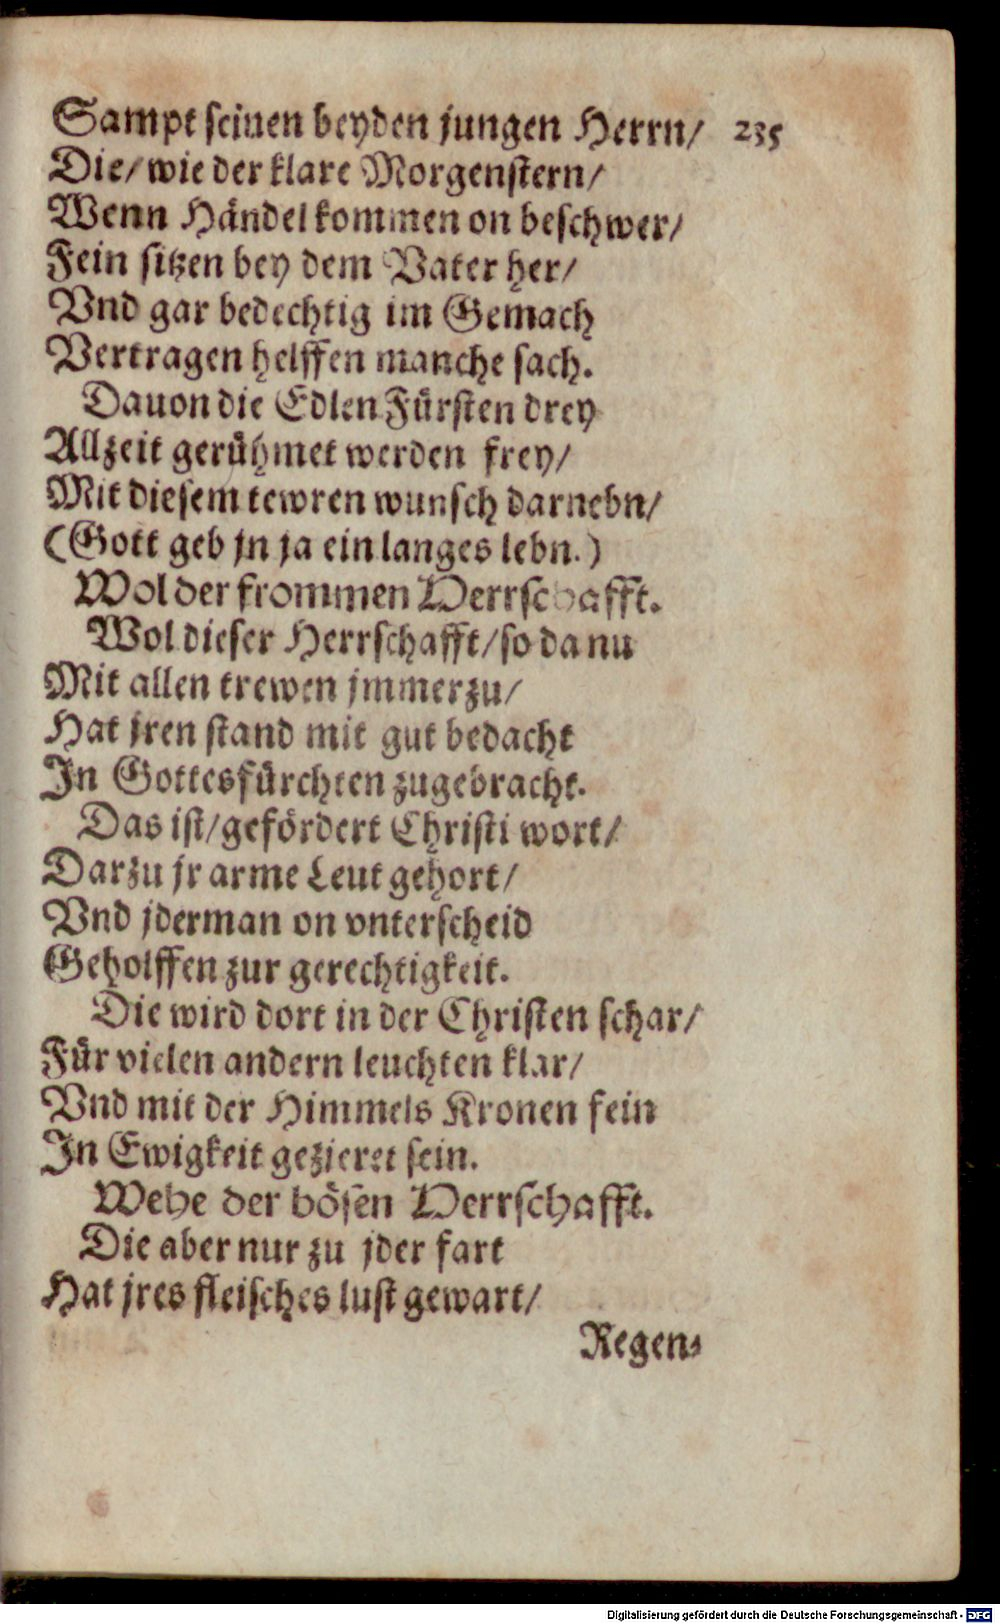 Sampt seinen beyden jungen Herrn/ 235
Die/ wie der klare Morgenstern/
Wenn Händel kommen on beschwer/
Fein sitzen bey dem Vater her/
Vnd gar bedechtig im Gemach
Vertragen helffen manche sach.
Dauon die Edlen Fürsten drey
Allzeit gerühmet werden frey/
Mit diesem tewren wunsch darnebn/
(Gott geb jn ja ein langes lebn.)
Wol der frommen Herrschafft.
Wol dieser Herrschafft/ so da nu
Mit allen trewen jmmerzu/
Hat jren stand mit gut bedacht
In Gottesfürchten zugebracht.
Das ist/ gefördert Christi wort/
Darzu jr arme Leut gehort/
Vnd jderman on vnterscheid
Geholffen zur gerechtigkeit.
Die wird dort in der Christen schar/
Für vielen andern leuchten klar/
Vnd mit der Himmels Kronen fein
In Ewigkeit gezieret sein.
Wehe der bösen Herrschafft.
Die aber nur zu jder fart
Hat jres fleisches lust gewart/
Regen-
Digitalisierung gefördert durch die Deutsche Forschungsgemeinschaft - DFG